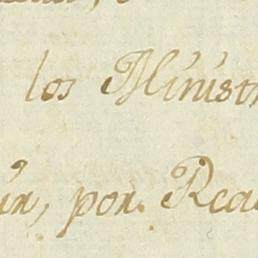 los Minist
in, por Rea